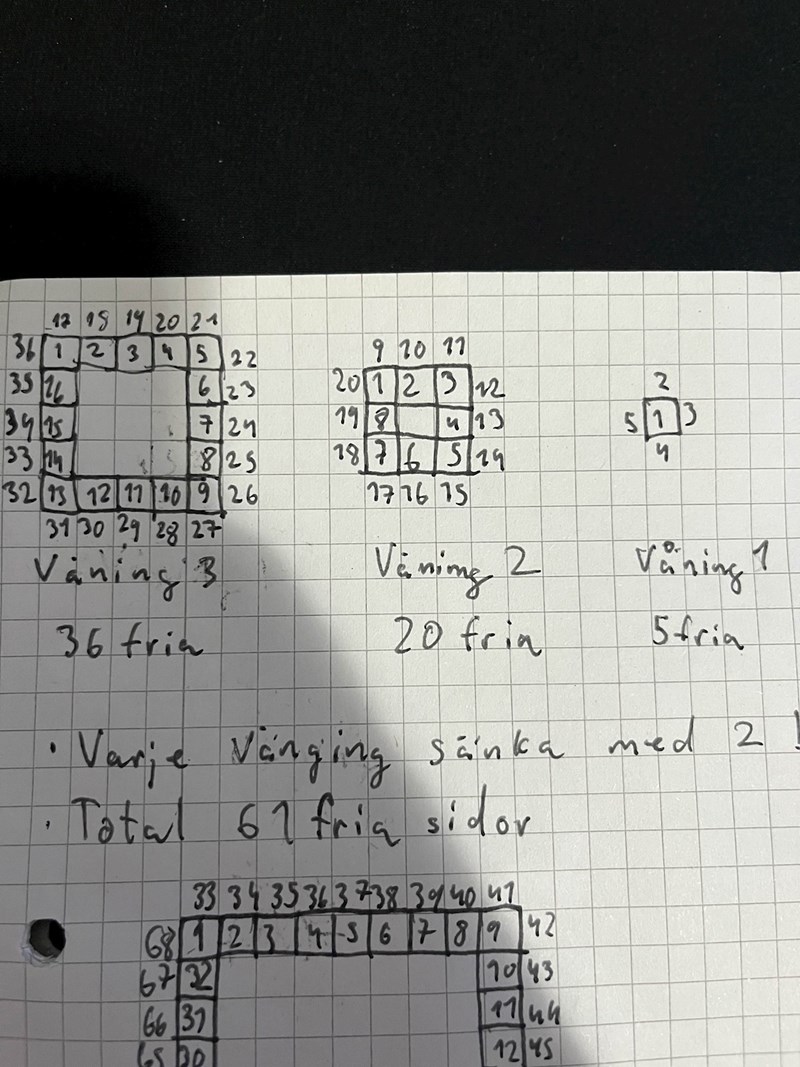 17 18 19 20 21
36 1 2 3 4 5 22
35 16 6 23
34 15 7 24
33 14 8 25
32 13 12 11 10 9 26
31 30 29 28 27
Våning 3
36 fria
9 10 11
20 1 2 3 12
19 8 4 13
18 7 6 5 14
17 16 15
Våning 2
20 fria
2
5 1 3
4
Våning 1
5 fria
• Varje Vånging sänka med 2 !
• Total 61 fria sidor
33 34 35 36 37 38 39 40 41
68 1 2 3 4 5 6 7 8 9 42
67 32 10 43
66 31 11 44
65 30 12 45